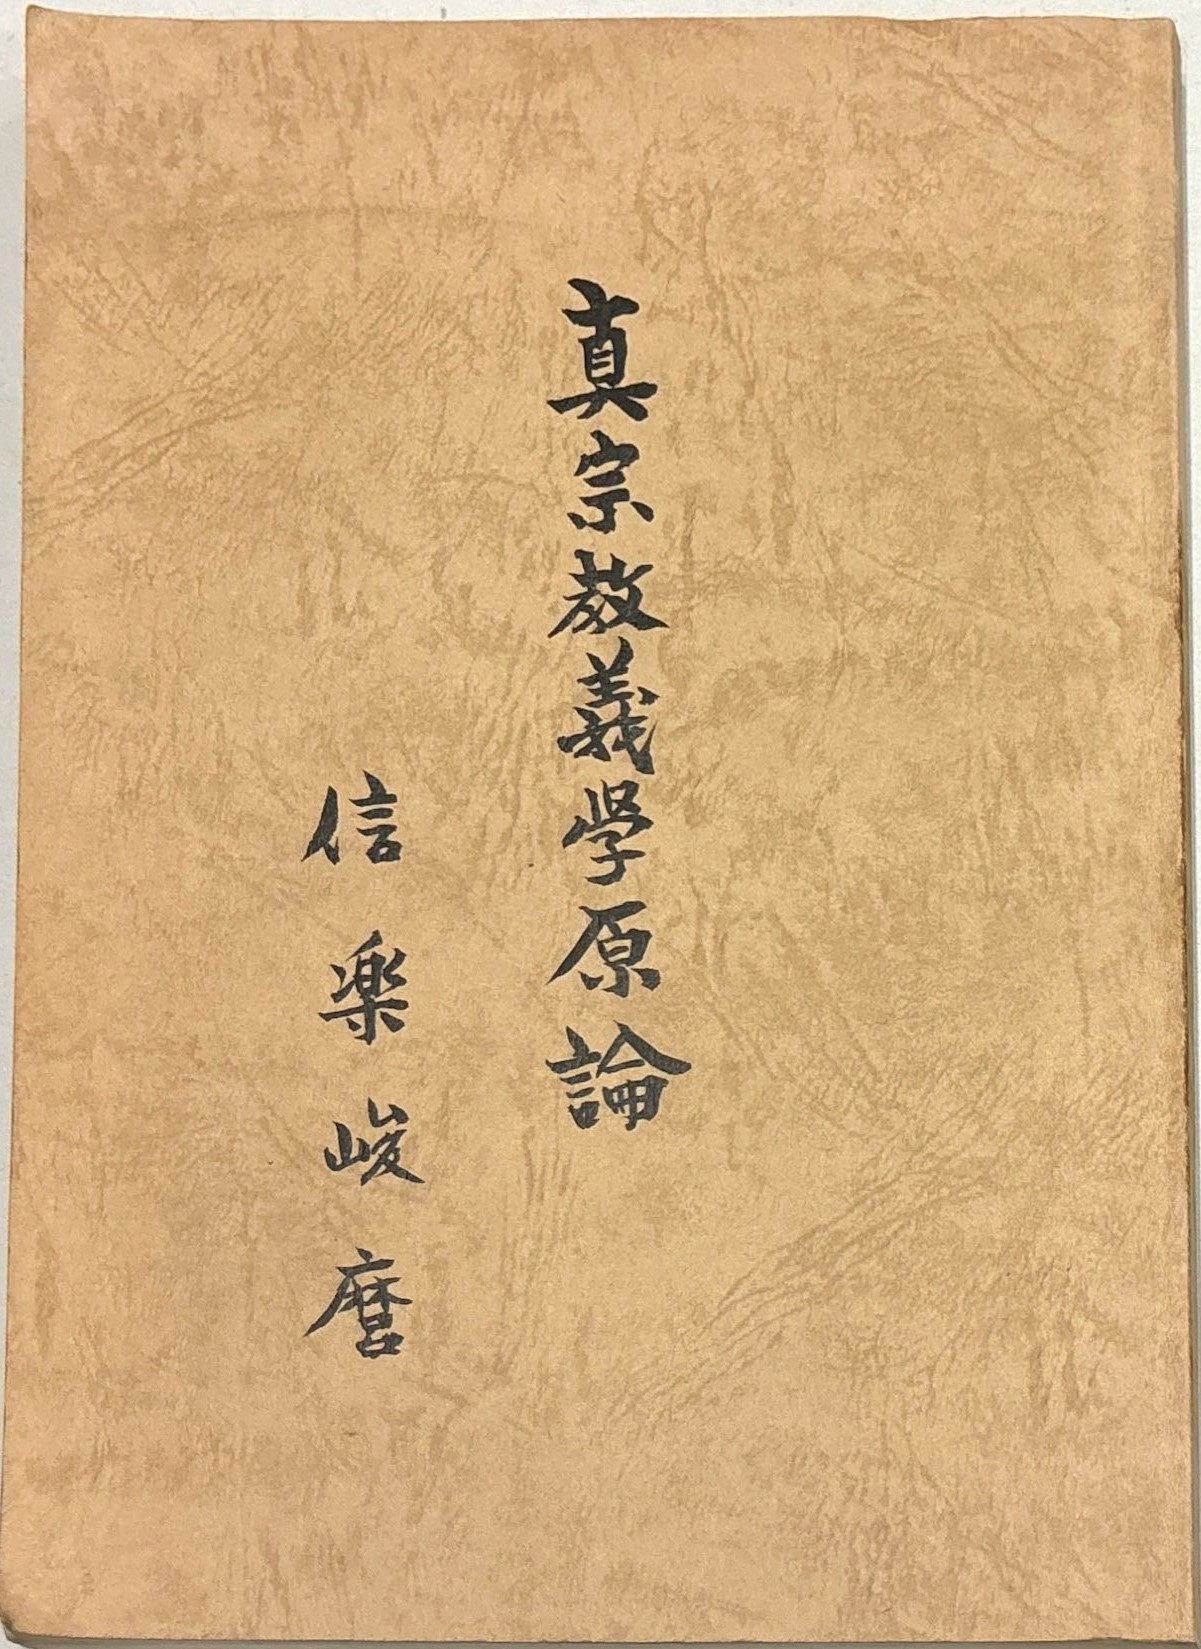 真宗教義學原論
信楽峻麿